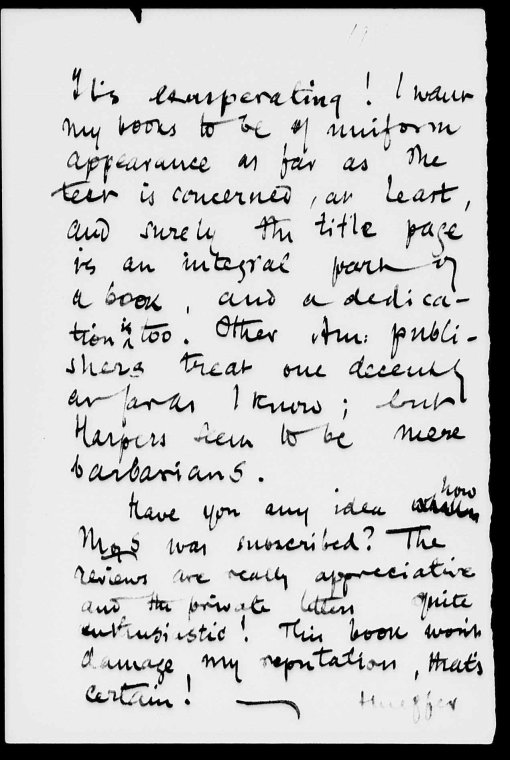 It is exasperating! I want
my books to be of uniform
appearance as far as the
text is concerned, at least,
and surely the title page
is an integral part of
a book, and a dedica-
tion is too. Other Am: publi-
shers treat one decently
as far as I know; but
Harpers seem to be mere
barbarians.
Have you any idea how
MoS was subscribed? The
reviews are really appreciative
and the private letters quite
enthusiastic! This book won't
damage my reputation, that's
certain! — Hueffer